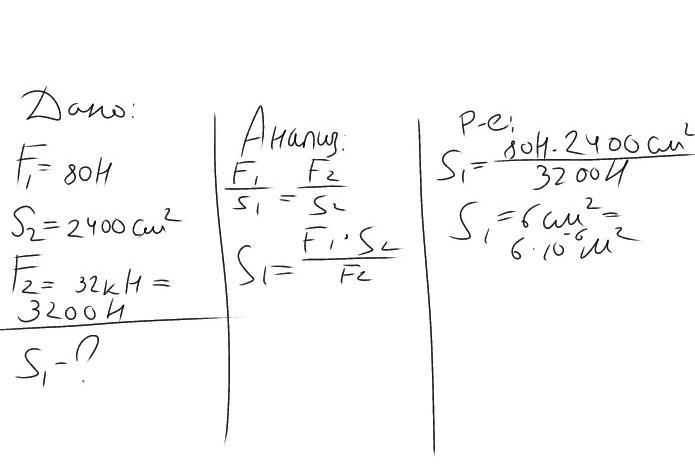 Дано:
F₁ = 80Н
S₂ = 2400 см²
F₂ = 32кН =
3200Н
S₁ - ?
Анализ:
F₁/S₁ = F₂/S₂
S₁ = F₁·S₂/F₂
Р-е:
S₁ = 80Н·2400 см²/3200Н
S₁ = 6 см² =
6·10⁻⁶ м²